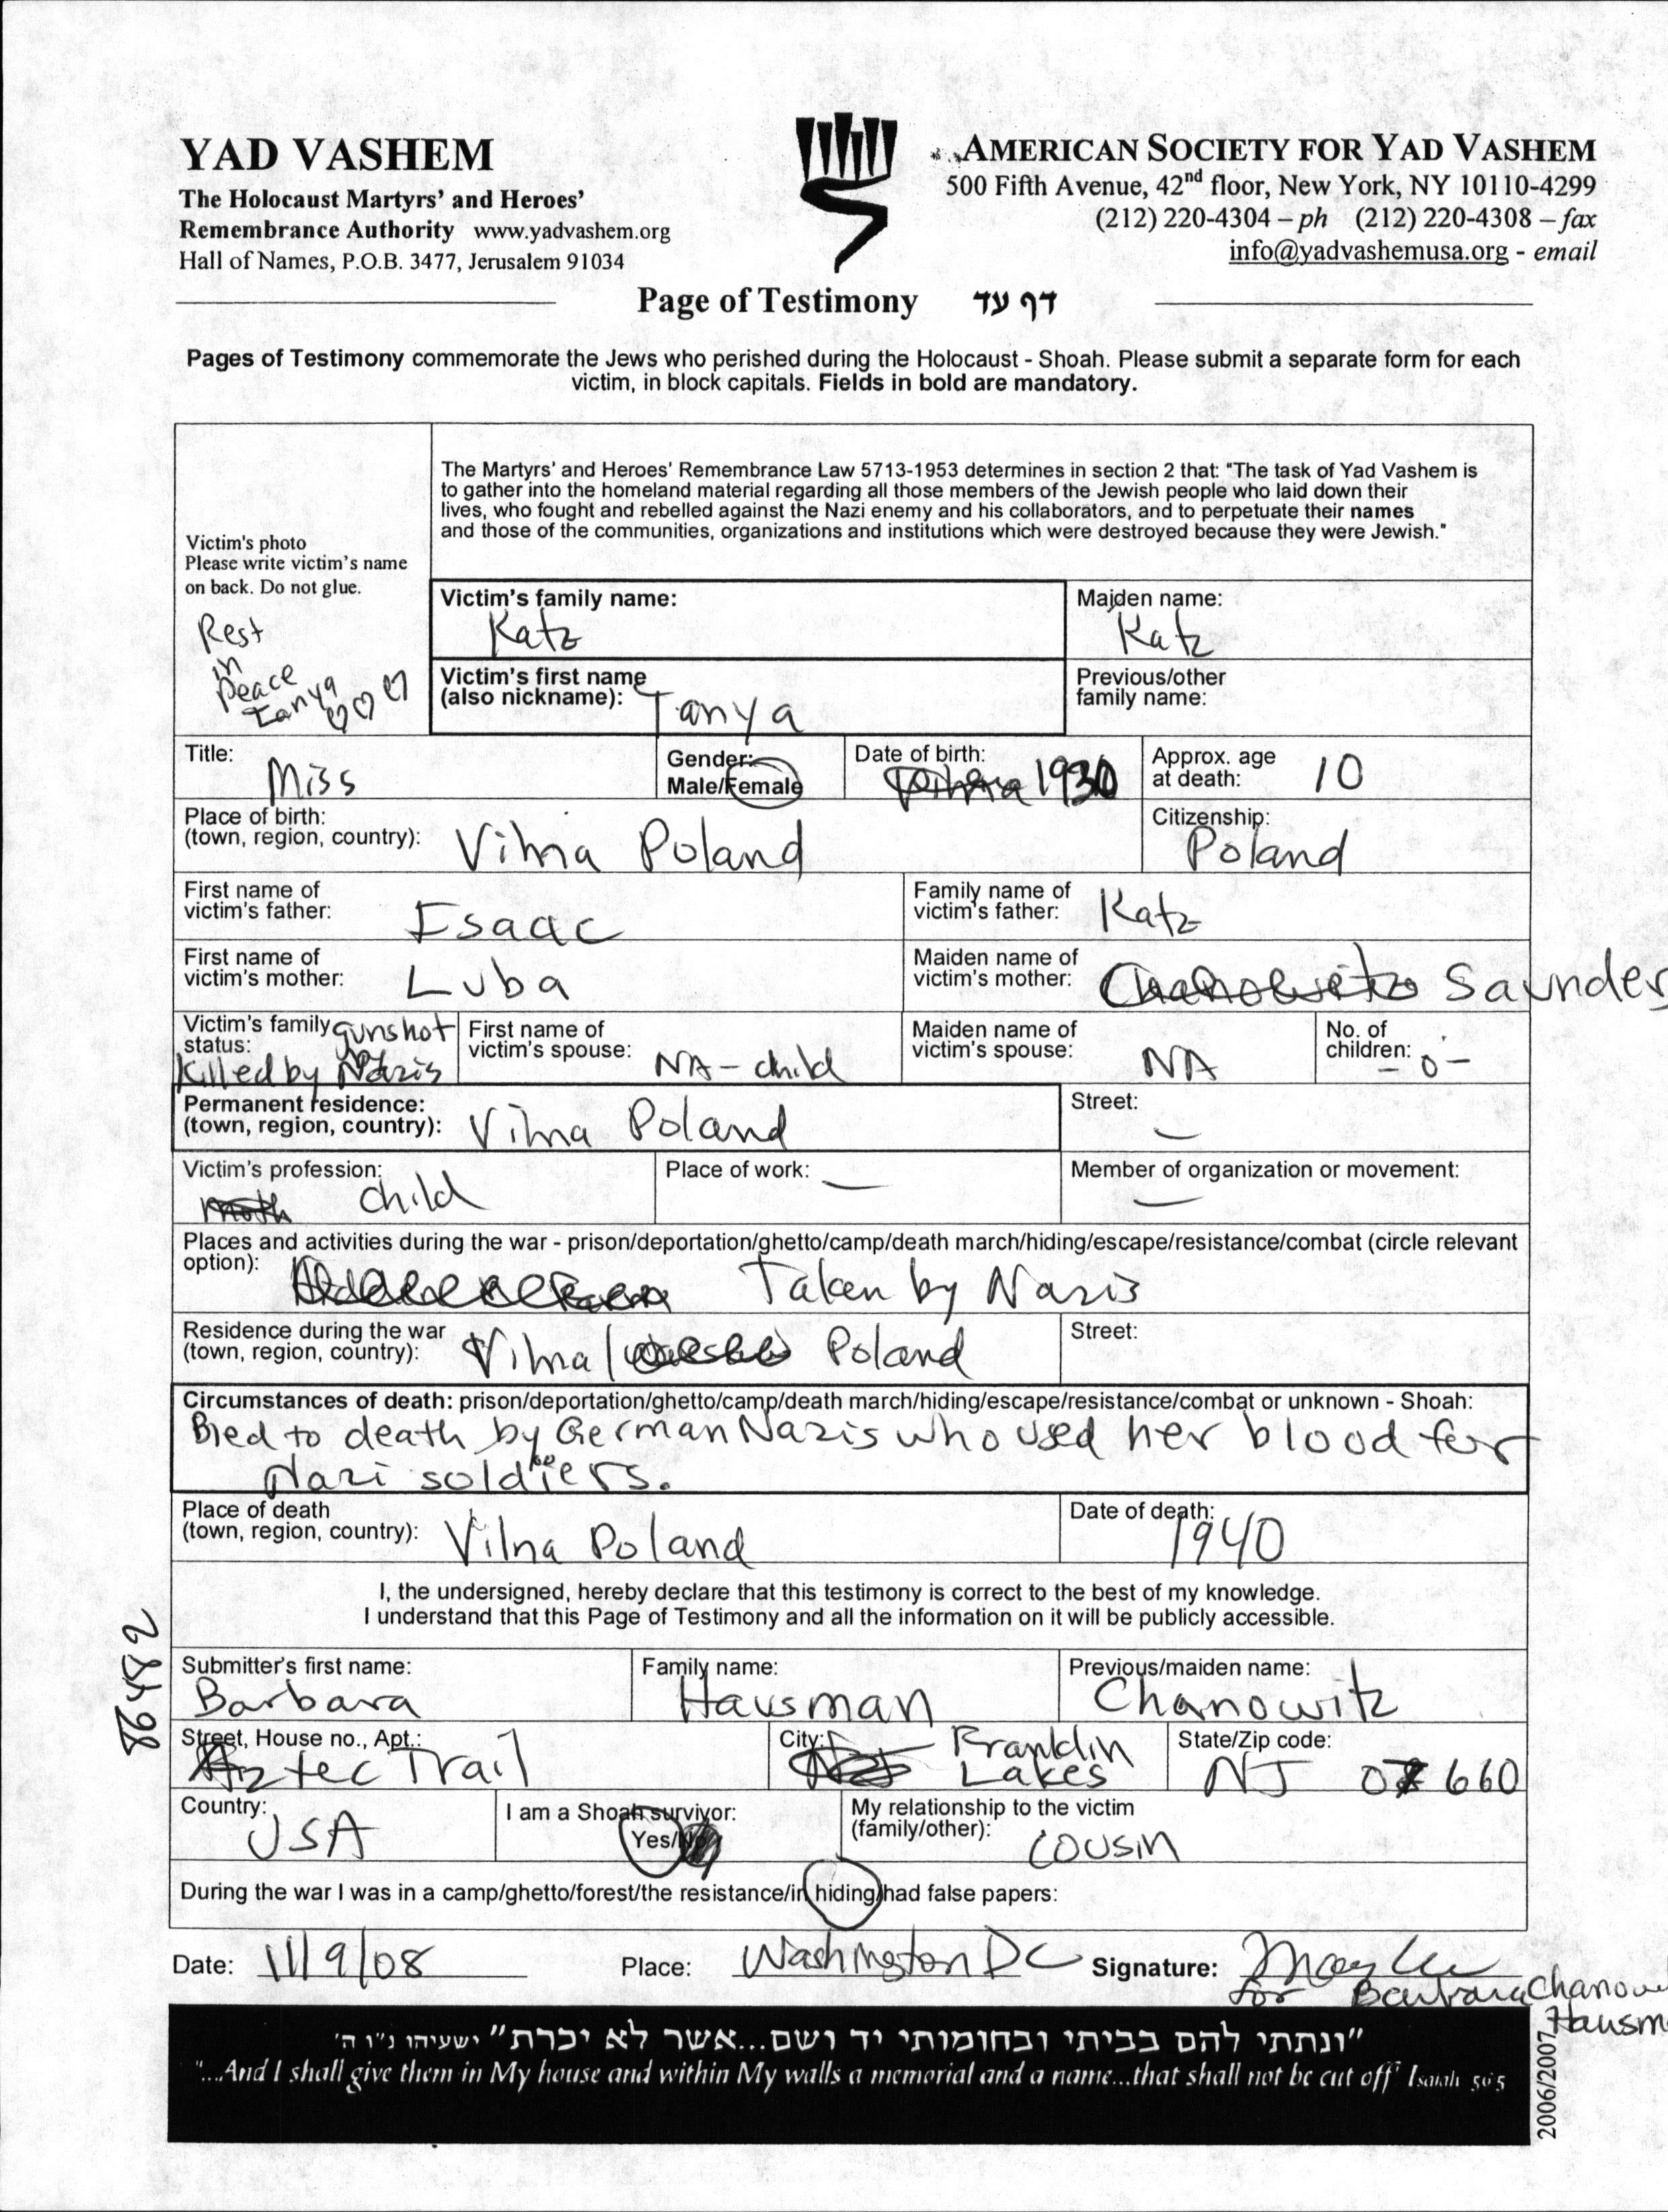 YAD VASHEM
The Holocaust Martyrs' and Heroes'
Remembrance Authority www.yadvashem.org
Hall of Names, P.O.B. 3477, Jerusalem 91034
AMERICAN SOCIETY FOR YAD VASHEM
500 Fifth Avenue, 42nd floor, New York, NY 10110-4299
(212) 220-4304 – ph (212) 220-4308 – fax
info@yadvashemusa.org - email
Page of Testimony דף עד
Pages of Testimony commemorate the Jews who perished during the Holocaust - Shoah. Please submit a separate form for each
victim, in block capitals. Fields in bold are mandatory.
The Martyrs' and Heroes' Remembrance Law 5713-1953 determines in section 2 that: "The task of Yad Vashem is
to gather into the homeland material regarding all those members of the Jewish people who laid down their
lives, who fought and rebelled against the Nazi enemy and his collaborators, and to perpetuate their names
and those of the communities, organizations and institutions which were destroyed because they were Jewish."
Victim's photo
Please write victim's name
on back. Do not glue.
Rest
in
Peace
Tanya
Victim's family name:
Katz
Maiden name:
Katz
Victim's first name
(also nickname): Tanya
Previous/other
family name:
Title: Miss
Gender:
Male/Female
Date of birth:
1930
Approx. age
at death: 10
Place of birth:
(town, region, country): Vilna Poland
Citizenship:
Poland
First name of
victim's father: Isaac
Family name of
victim's father: Katz
First name of
victim's mother: Luba
Maiden name of
victim's mother: Chanowitz Saunders
Victim's family
status: gunshot
Killed by Nazis
First name of
victim's spouse: NA - child
Maiden name of
victim's spouse: NA
No. of
children: - 0 -
Permanent residence:
(town, region, country): Vilna Poland
Street: —
Victim's profession:
child
Place of work: —
Member of organization or movement:
—
Places and activities during the war - prison/deportation/ghetto/camp/death march/hiding/escape/resistance/combat (circle relevant
option): Taken by Nazis
Residence during the war
(town, region, country): Vilna / Poland
Street:
Circumstances of death: prison/deportation/ghetto/camp/death march/hiding/escape/resistance/combat or unknown - Shoah:
Bled to death by German Nazis who used her blood for
Nazi soldiers.
Place of death
(town, region, country): Vilna Poland
Date of death:
1940
I, the undersigned, hereby declare that this testimony is correct to the best of my knowledge.
I understand that this Page of Testimony and all the information on it will be publicly accessible.
86482
Submitter's first name:
Barbara
Family name:
Hausman
Previous/maiden name:
Chanowitz
Street, House no., Apt.:
Aztec Trail
City: Franklin
Lakes
State/Zip code:
NJ 07660
Country:
USA
I am a Shoah survivor:
Yes/No
My relationship to the victim
(family/other): cousin
During the war I was in a camp/ghetto/forest/the resistance/in hiding/had false papers:
Date: 11/9/08 Place: Washington DC Signature:
for Barbara Chanow
Hausm
"ונתתי להם בביתי ובחומותי יד ושם...אשר לא יכרת" ישעיהו נ"ו ה'
"...And I shall give them in My house and within My walls a memorial and a name...that shall not be cut off" Isaiah 56:5
2006/2007